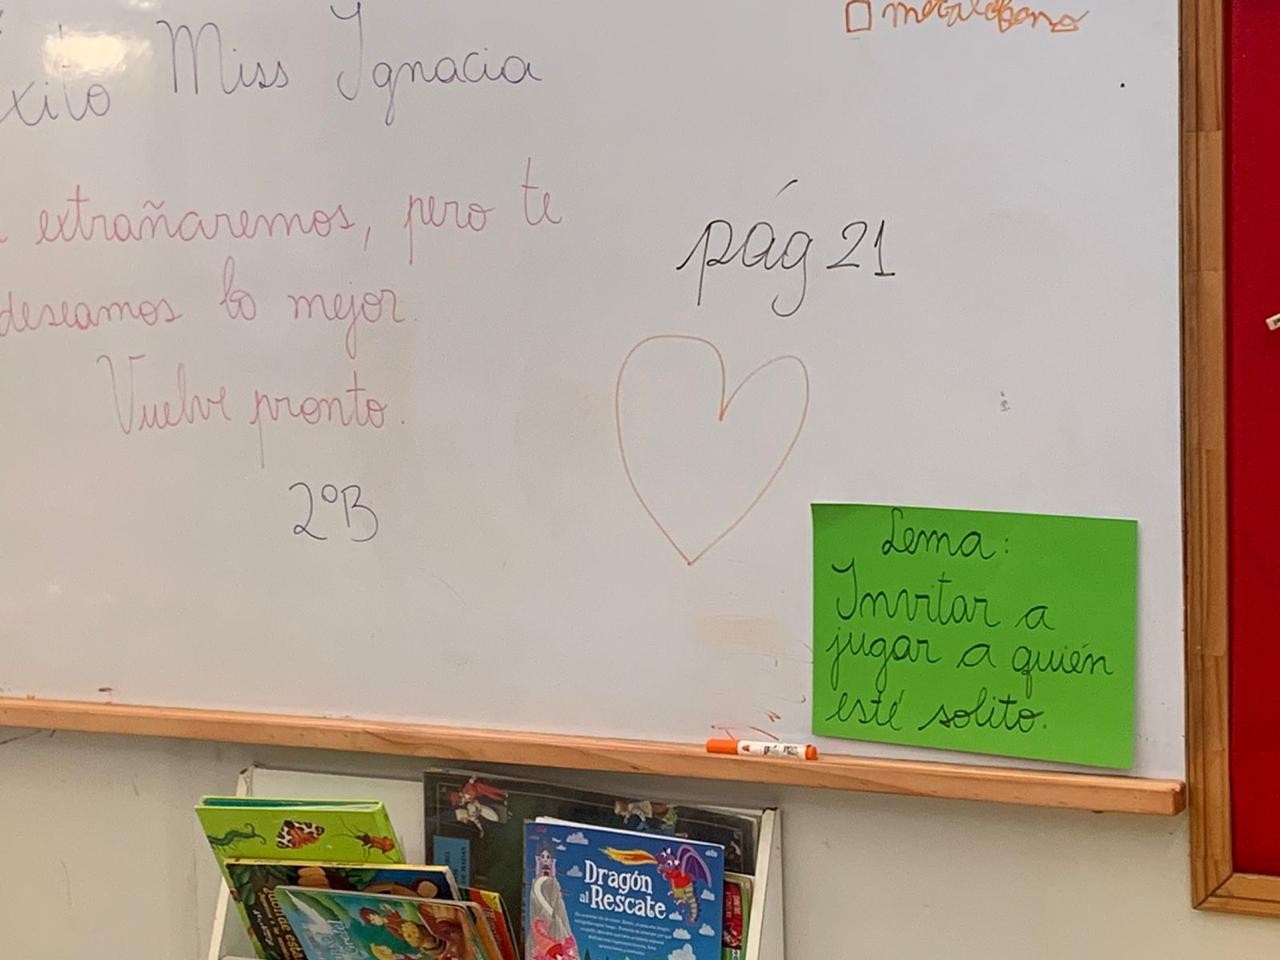 Éxito Miss Ignacia
extrañaremos, pero te
deseamos lo mejor.
Vuelve pronto.
2ºB
metalófono
pág 21
Lema:
Invitar a
jugar a quién
esté solito.
Dragón
al Rescate